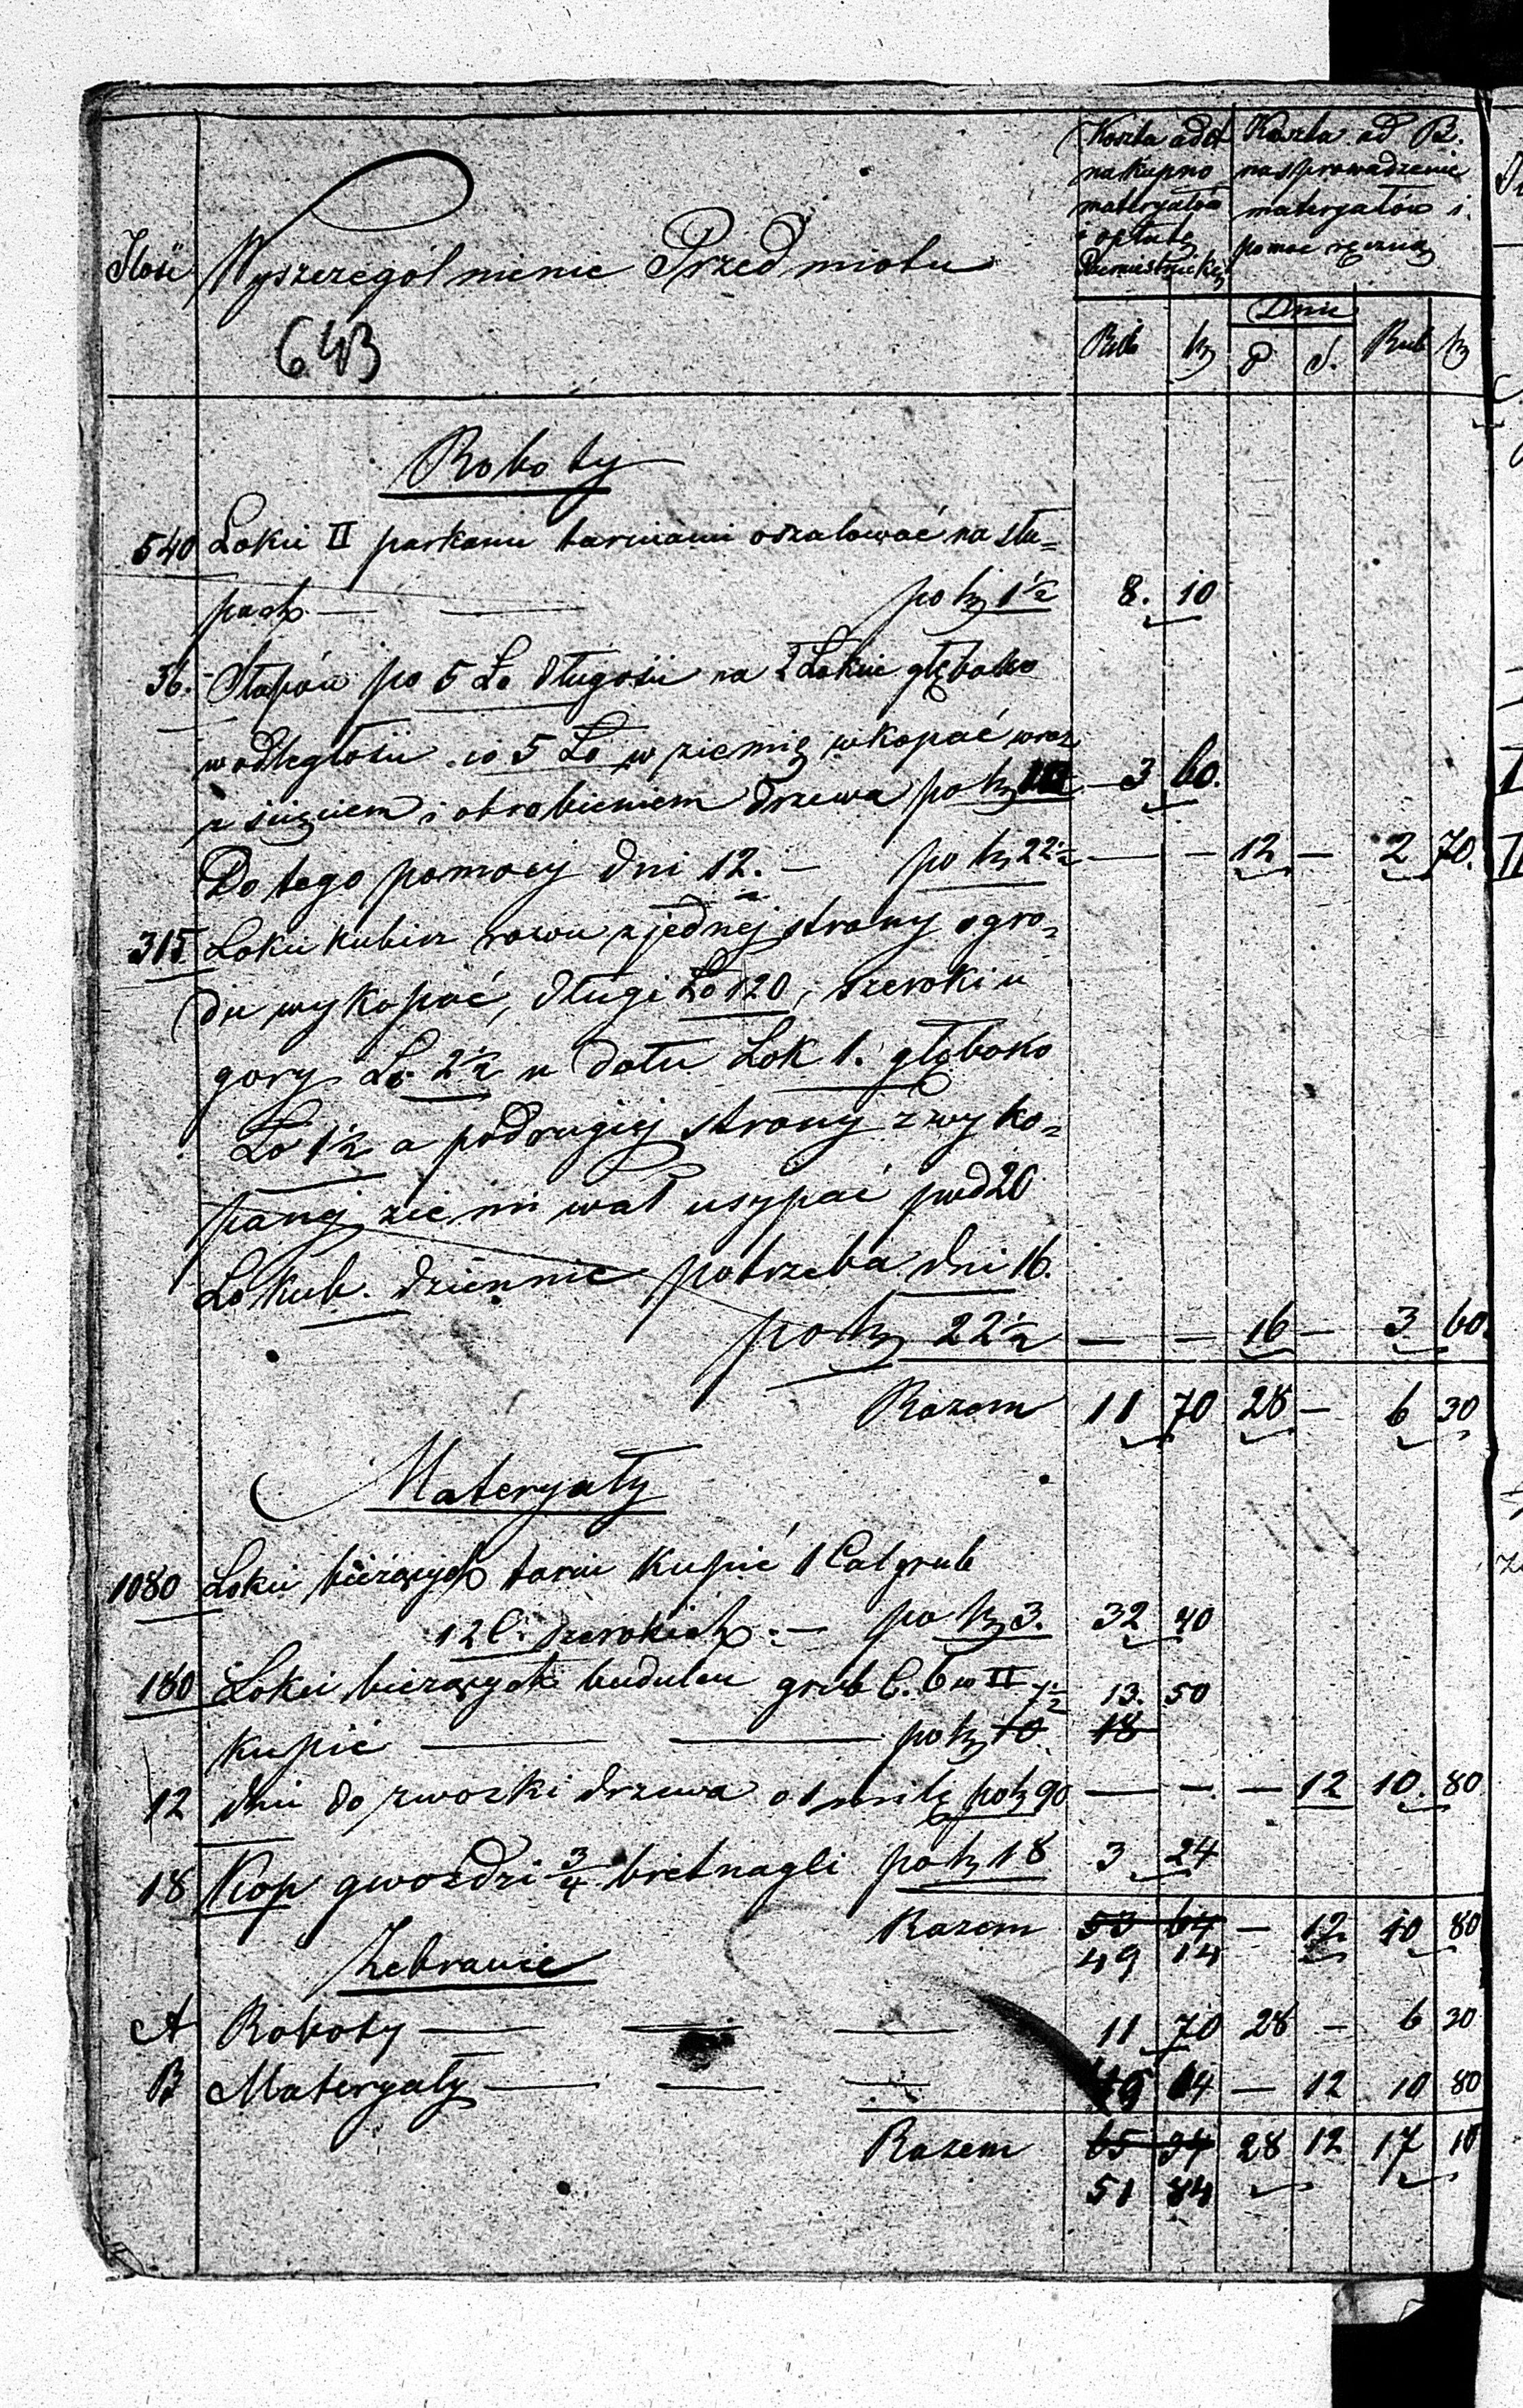 Ilość Wyszczególnienie Przedmiotu
643
Koszta ad A na kupno materyałów i opłatę Rzemieślnickie
Koszta ad B. na sprowadzenie materyałów i pomoc ręczną
Rub k Dnie P S. Rub k
Roboty
540 Łokci II parkanu tarciami oszalować na słu=
pach — — po k 1 1/2 8. 10
36. Słupów po 5 Ło długości na 2 Łokcie głęboko
w odległości co 5 Ło w ziemię wkopać wraz
z sięciem i obrobieniem drzewa po k — 3 60.
Do tego pomocy dni 12. — po k 22 1/2 — — 12 — 2 70.
315 Łokci kubicz rowu z jednej strony ogro=
du wykopać, długi Ło 120, szeroki u
gory Ło 2 1/2 u dołu Łok 1. głęboko
Ło 1 1/2 a po drugiej strony z wyko=
panej ziemi wał usypać pod 20
Ło kub. dziennie potrzeba dni 16.
po k 22 1/2 — — 16 — 3 60.
Razem 11 70 28 — 6 30
Materyały
1080 Łokci bieżących tarcic kupić 1 Cal grub
12 C. szerokich. — po k 3. 32 40
180 Łokci bieżących budulcu grub C. 6 w II 7 1/2 13. 50
kupić — — po k 10 18
12 dni do zwozki drzewa o 1 milę po k 90 — — — 12 10. 80
18 Kop gwoździ 3/4 bretnagli po k 18 3 24
Razem 53 64 — 12 10 80
49 14
Zebranie
A Roboty — — — 11 70 28 — 6 30
B Materyały — — — 64 — 12 10 80
Razem 65 34 28 12 17 10
51 84